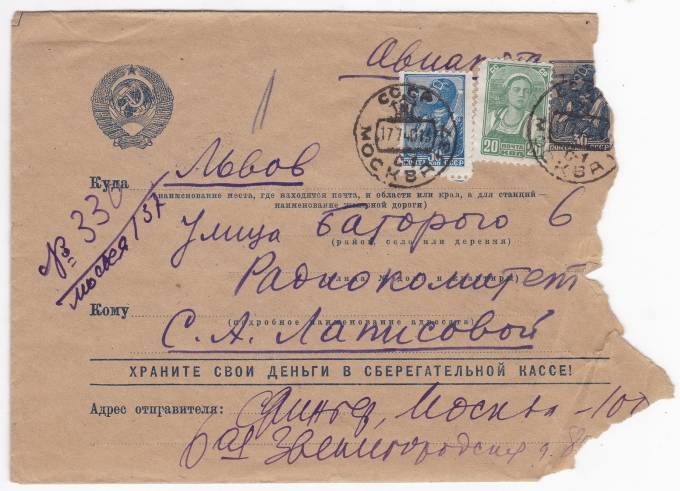 Авиапочта
СССР
17 7 40
МОСКВА
30
ПОЧТА СССР
20 ПОЧТА 20
КОП
30
ПОЧТА СССР
МОСКВА
Куда Львов
(наименование места, где находится почта, и области или края, а для станций—
наименование железной дороги)
№ 330
Москва 137
Улица Баторого 6
(район, село или деревня)
Радиокомитет
Кому
С. А. Лаписовой
(подробное наименование адресата)
ХРАНИТЕ СВОИ ДЕНЬГИ В СБЕРЕГАТЕЛЬНОЙ КАССЕ!
Адрес отправителя: Москва-100
6ая Звенигородская д. 8